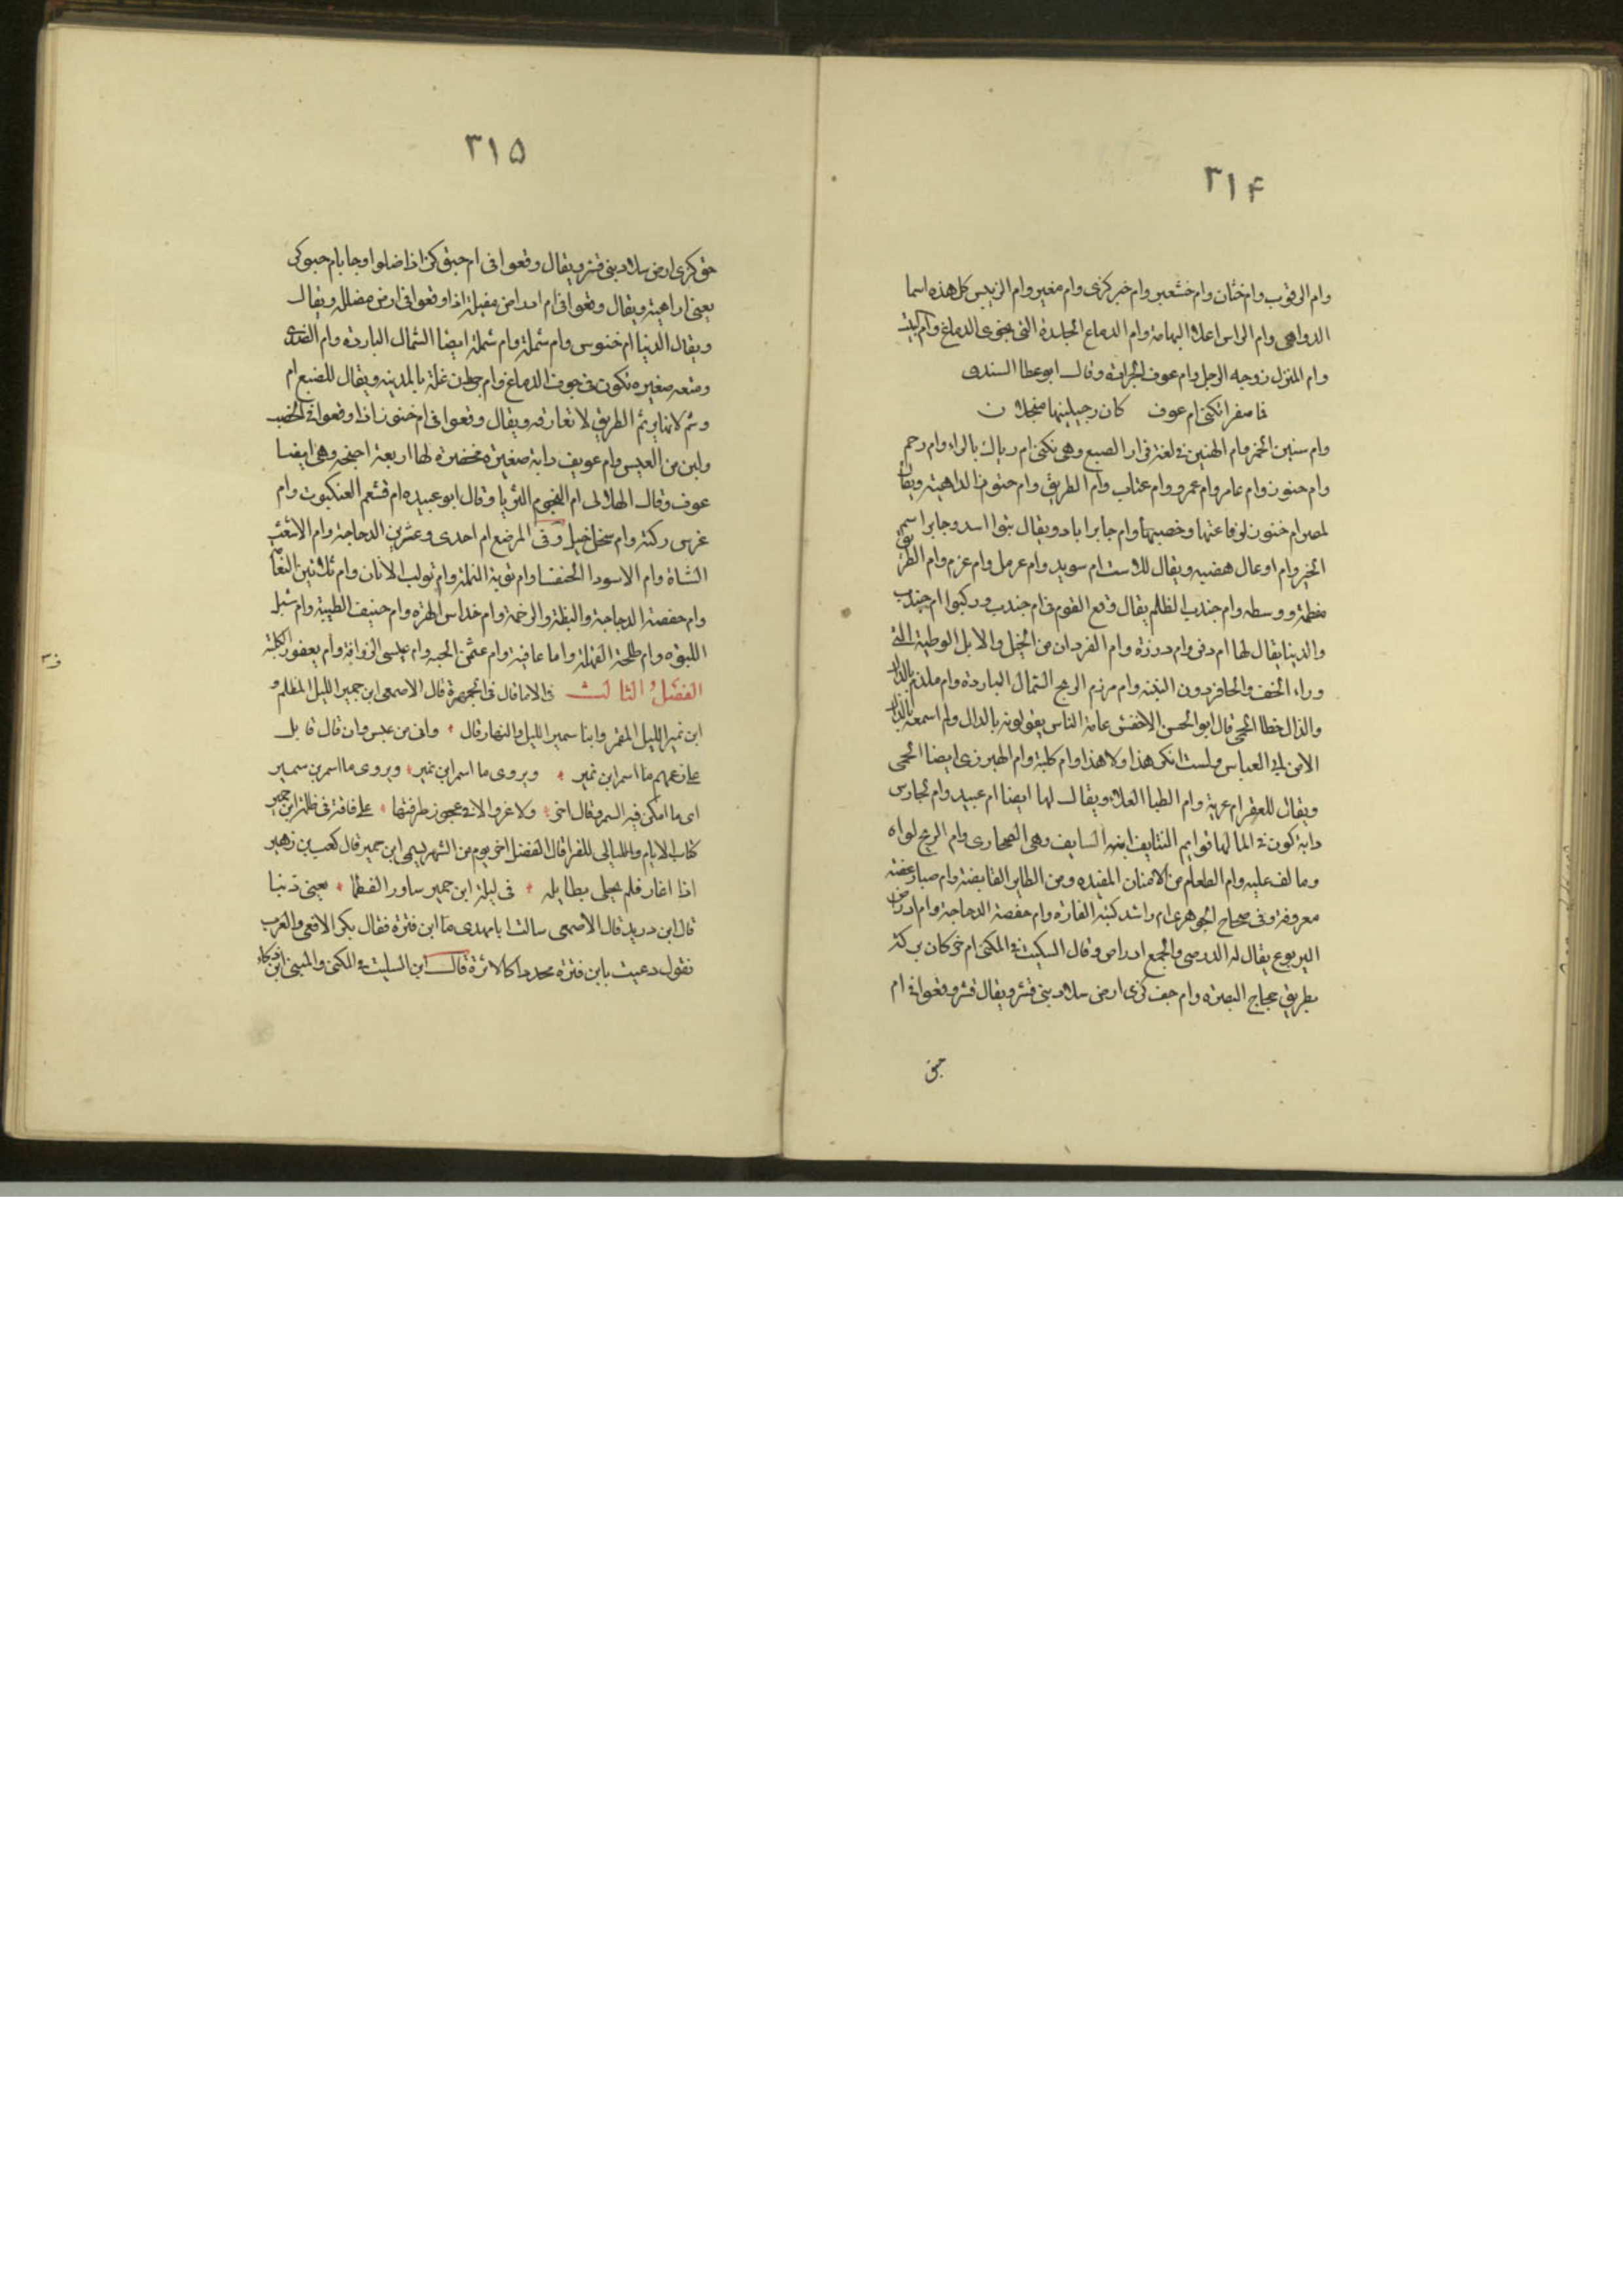 ٣١۴
وام الرقوب وام خشاف وام خشعبر وام خبركرى وام مغير وام الربيس كل هذه اسما
الدواهى وام الراس اعلا الهامة وام الدماغ الجلدة التى تحوى الدماغ وام البيت
وام المنزل زوجه الرجل وام عوف الجرادة وقال ابو عطا السندى
فما صفرا تكنى ام عوف كان رجيليتها منجلان
وام سنين الخمر وام الهنبر فى لغة فزارا الضبع وهى تكنى ام ريال بالراء وام رحم
وام حنور وام عامر وام عمرو وام عتاب وام الطريق وام حنور الداهية ويقال
لمصر ام خنور لرفاعتها وخصبها وام جابر اياد ويقال بنوا اسد وجابر اسم
الخبز وام اوعال هضبه ويقال للاست ام سويد وام عزمل وام عزم وام الطريق
معظمه ووسطه وام جندب الظلم يقال وقع القوم فى ام جندب وركبوا ام جندب
والدنيا يقال لها ام دفر وام درزة وام القردان من الخيل والابل الوطية التى
وراء الخف والحافر دون الثنة وام مرزم الريح الشمال الباردة وام ملدم بالدال
والذال خطا الحمى قال ابو الحسن الاخفش عامة الناس يقولونه بالدال ولم اسمعه بالذال
الا من ابى العباس ولست انكر هذا ولا هذا وام كلبة وام الهبرزى ايضا الحمى
ويقال للعقرب ام عريط وام الظبا الفلاة ويقال لها ايضا ام عبيد وام تجارس
دابة تكون فى الما لها قوايم
وما لف عليه وام الطعام من الانسان المعده ومن الطاير القانصة وام صبار هضبه
معروفة وفى صحاح الجوهرى ام راشد كنية الفارة وام حفصة الدجاجة وام ادراص
اليربوع يقال له الدرص والجمع ادراص وقال السكيت فى المكنى ام خركان بركة
بطريق حجاج البصرة وام حبوكرى ارض ببلاد بنى قشير ويقال وقعوا فى ام
حبق
٣١۵
حوكرى ارض ببلاد بنى قشير ويقال وقعوا فى ام حبوكر اذا ضلوا وجا بام حبوكرى
يعنى الداهية ويقال وقعوا فى ام ادراص مضللة اذا وقعوا فى ارض مضلل ويقال
ويقال الدنيا ام خنوس وام شملة وام شملة ايضا الشمال الباردة وام الصدى
ومتعه صغيره تكون فى جوف الدماغ وام جردان نخلة بالمدينه ويقال للضبع ام
وشم لانها ترثم الطريق لا تفارقه ويقال وقعوا فى ام خنور اذا وقعوا فى الخصب
ولين من العيش وام عويف دابة صغيرة مخضرة لها اربعة اجنحه وهى ايضا
عوف وقال الهلالى ام النجوم الثريا وقال ابو عبيده ام قشعم العنكبوت وام
غرس ركية وام سخل جبل وفى المرصع ام احدى وعشرين الدجاجة وام الاشعث
الشاة وام الاسود الخنفسا وام توبة النملة وام تولب الاتان وام ثلاثين النعامة
وام حفصة الدجاجة والبطة والرخمة وام خداش الهرة وام خنيف الظبية وام شبل
اللبوه وام طلحة القملة واما عافية وام عثمن الحيه وام عيسى الزرافة وام يعفور الكلبة
الفصل الثالث فى الابنا قال فى الجمهرة قال الاصمعى ابن جمير الليل المظلم و
ابن نمير الليل المقمر وابنا سمير الليل والنهار قال ٠ وانى من عبس وان قال قايل
على زعمهم ما اسمر ابن نمير ٠ ويروى ما اسمر ابن نمير ٠ ويروى ما اسمر بن سمير
اى ما امكن فيه السمر وقال اخر ٠ ولا غرو الا فى عجوز طرقتها ٠ على فاقة فى ظلمة ابن جمير
كتاب الايام والليالى للفرا قال المفضل اخر يوم من الشهر يسمى ابن جمير قال كعب بن زهير
اذا اغار فلم يحلى بطايله ٠ فى ليلة ابن جمير ساور الفطما ٠ يعنى ذئبا
قال ابن دريد قال الاصمعى سالت ابا مهدى ما ابن قترة فقال بكر الافعى والعرب
تقول دعيت بابن قترة محددا كالابرة قال ابن السكيت فى المكنى والمبنى ابن ذكاء